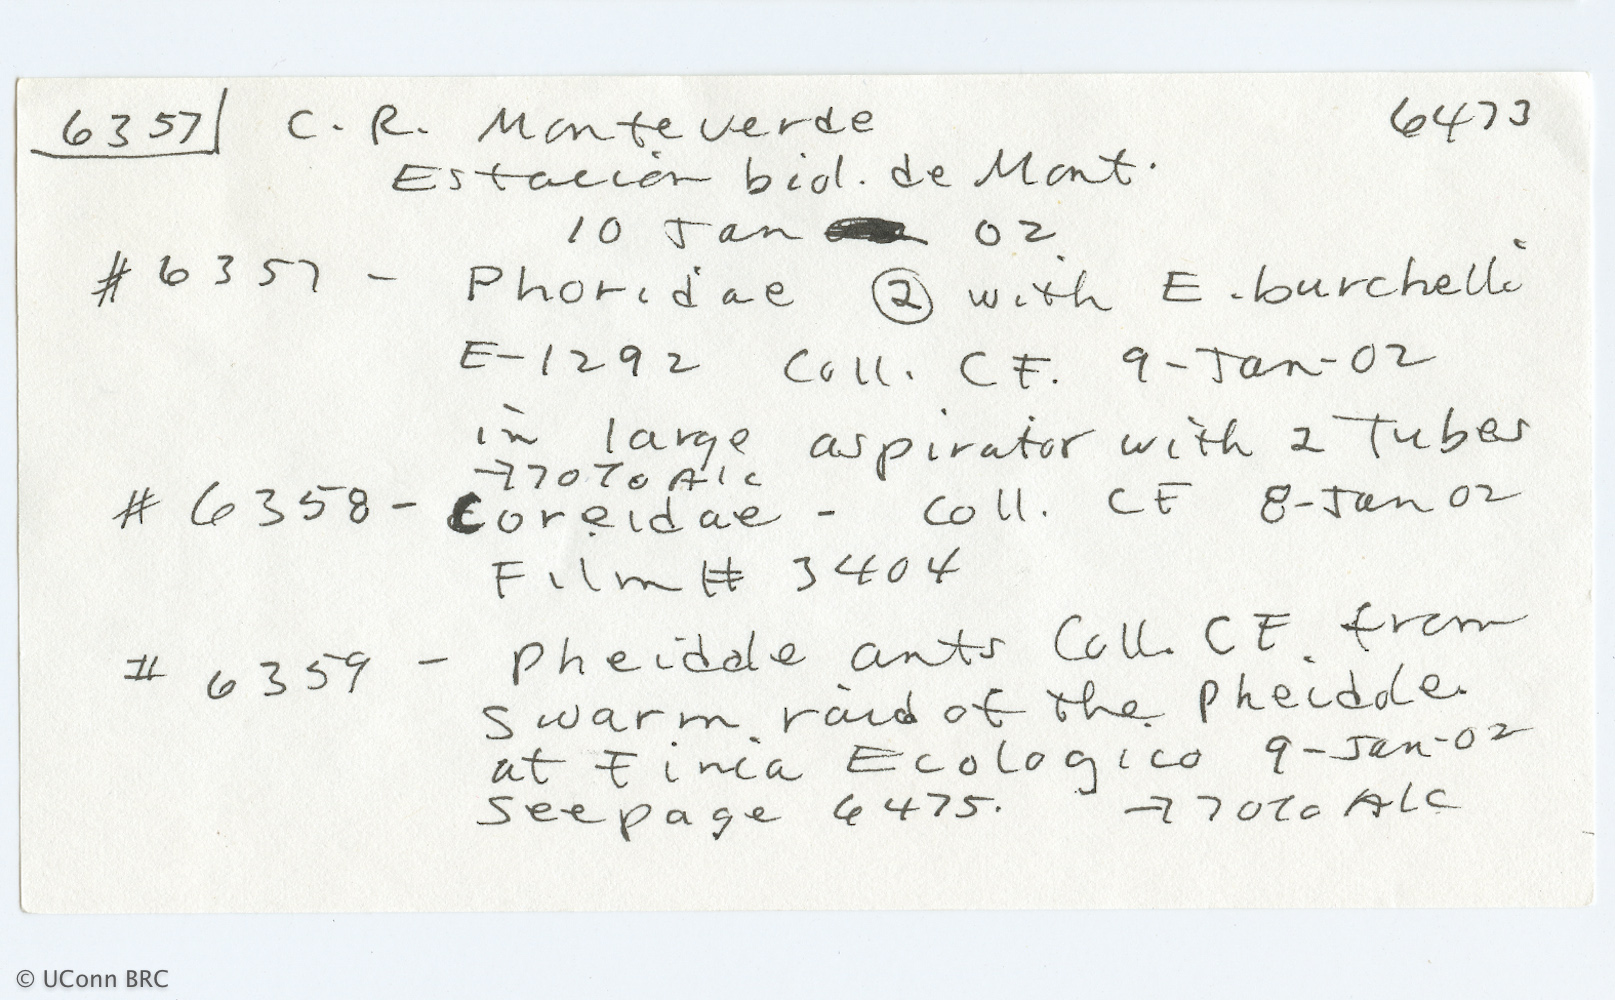 6357 C. R. Monteverde 6473
Estación biol. de Mont.
10 Jan 02
#6357 - Phoridae ② with E. burchelli
E-1292 Coll. CF. 9-Jan-02
in large aspirator with 2 Tubes
→70% Alc
#6358 - Coreidae - coll. CF 8-Jan 02
Film # 3404
# 6359 - Pheidole ants Coll. CF. from
swarm raid of the Pheidole.
at Finca Ecologico 9-Jan-02
see page 6475. →70% Alc
© UConn BRC